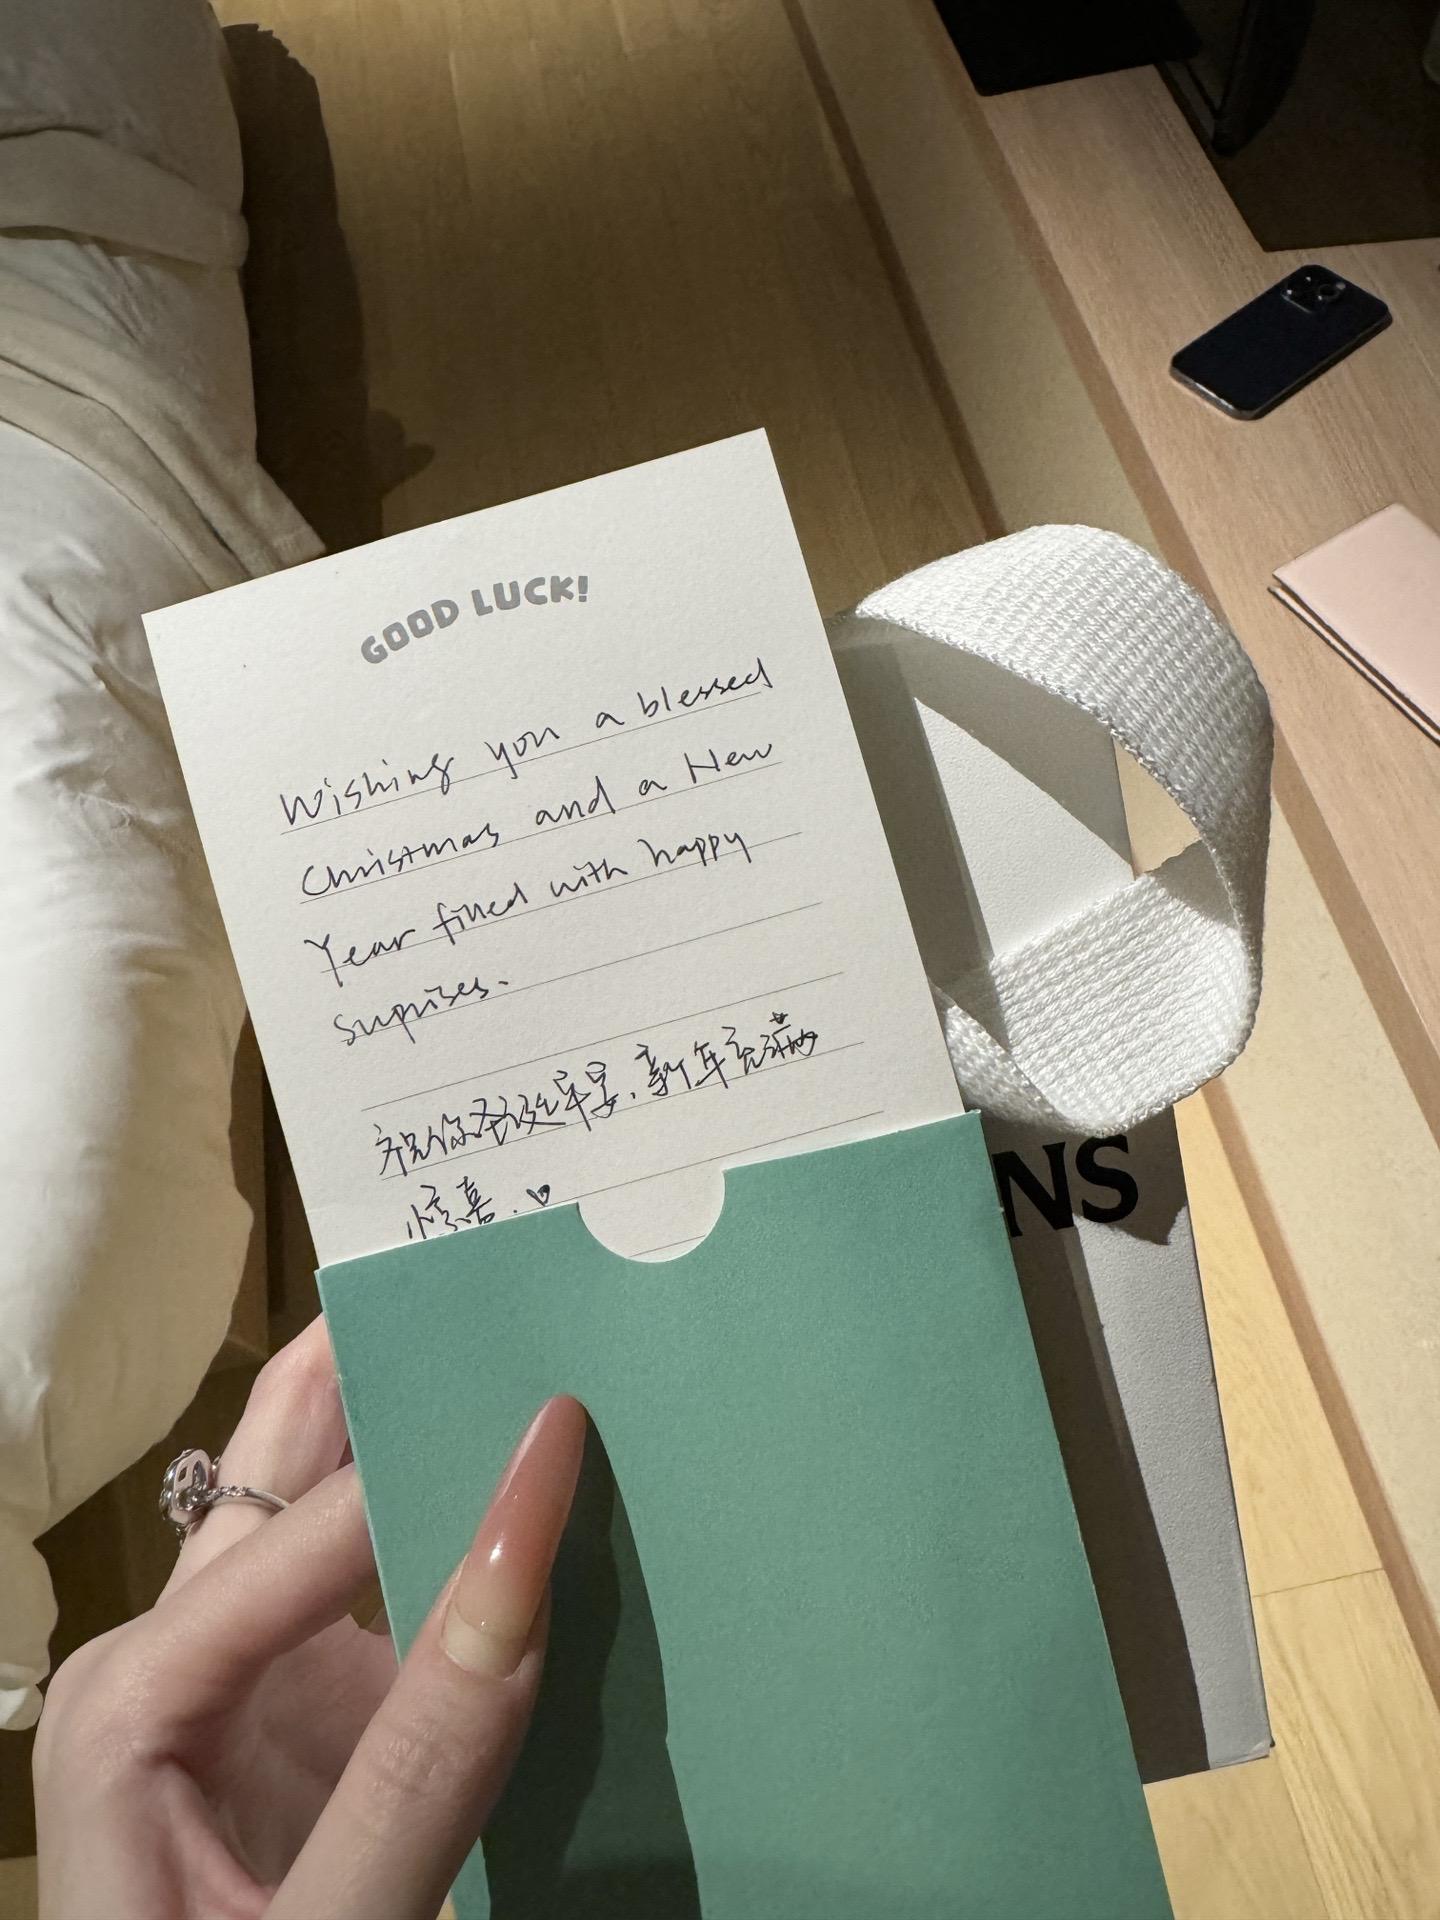 GOOD LUCK!
Wishing you a blessed
Christmas and a New
Year filled with happy
suprises.
祝你圣诞毕享，新年充满
惊喜.♡
NS